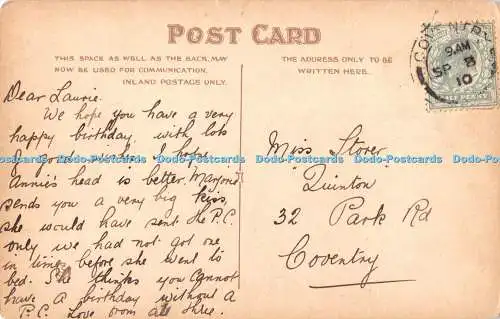 POST CARD
THIS SPACE AS WELL AS THE BACK, MAY
NOW BE USED FOR COMMUNICATION.
INLAND POSTAGE ONLY.
THE ADDRESS ONLY TO BE
WRITTEN HERE.
COVENTRY
9. AM
SP 8
10
Dear Laurie.
We hope you have a very
happy birthday with lots
of good wishes. I hope
Annie's head is better. Marjorie
sends you a very big kiss,
she would have sent the P.C.
only we had not got one
in time, before she went to
bed. She thinks you cannot
have a birthday without a
P.C. Love from all three.
Miss Storer
"Quinton"
32 Park Rd
Coventry
Dodo-Postcards Dodo-Postcards Dodo-Postcards Dodo-Postcards